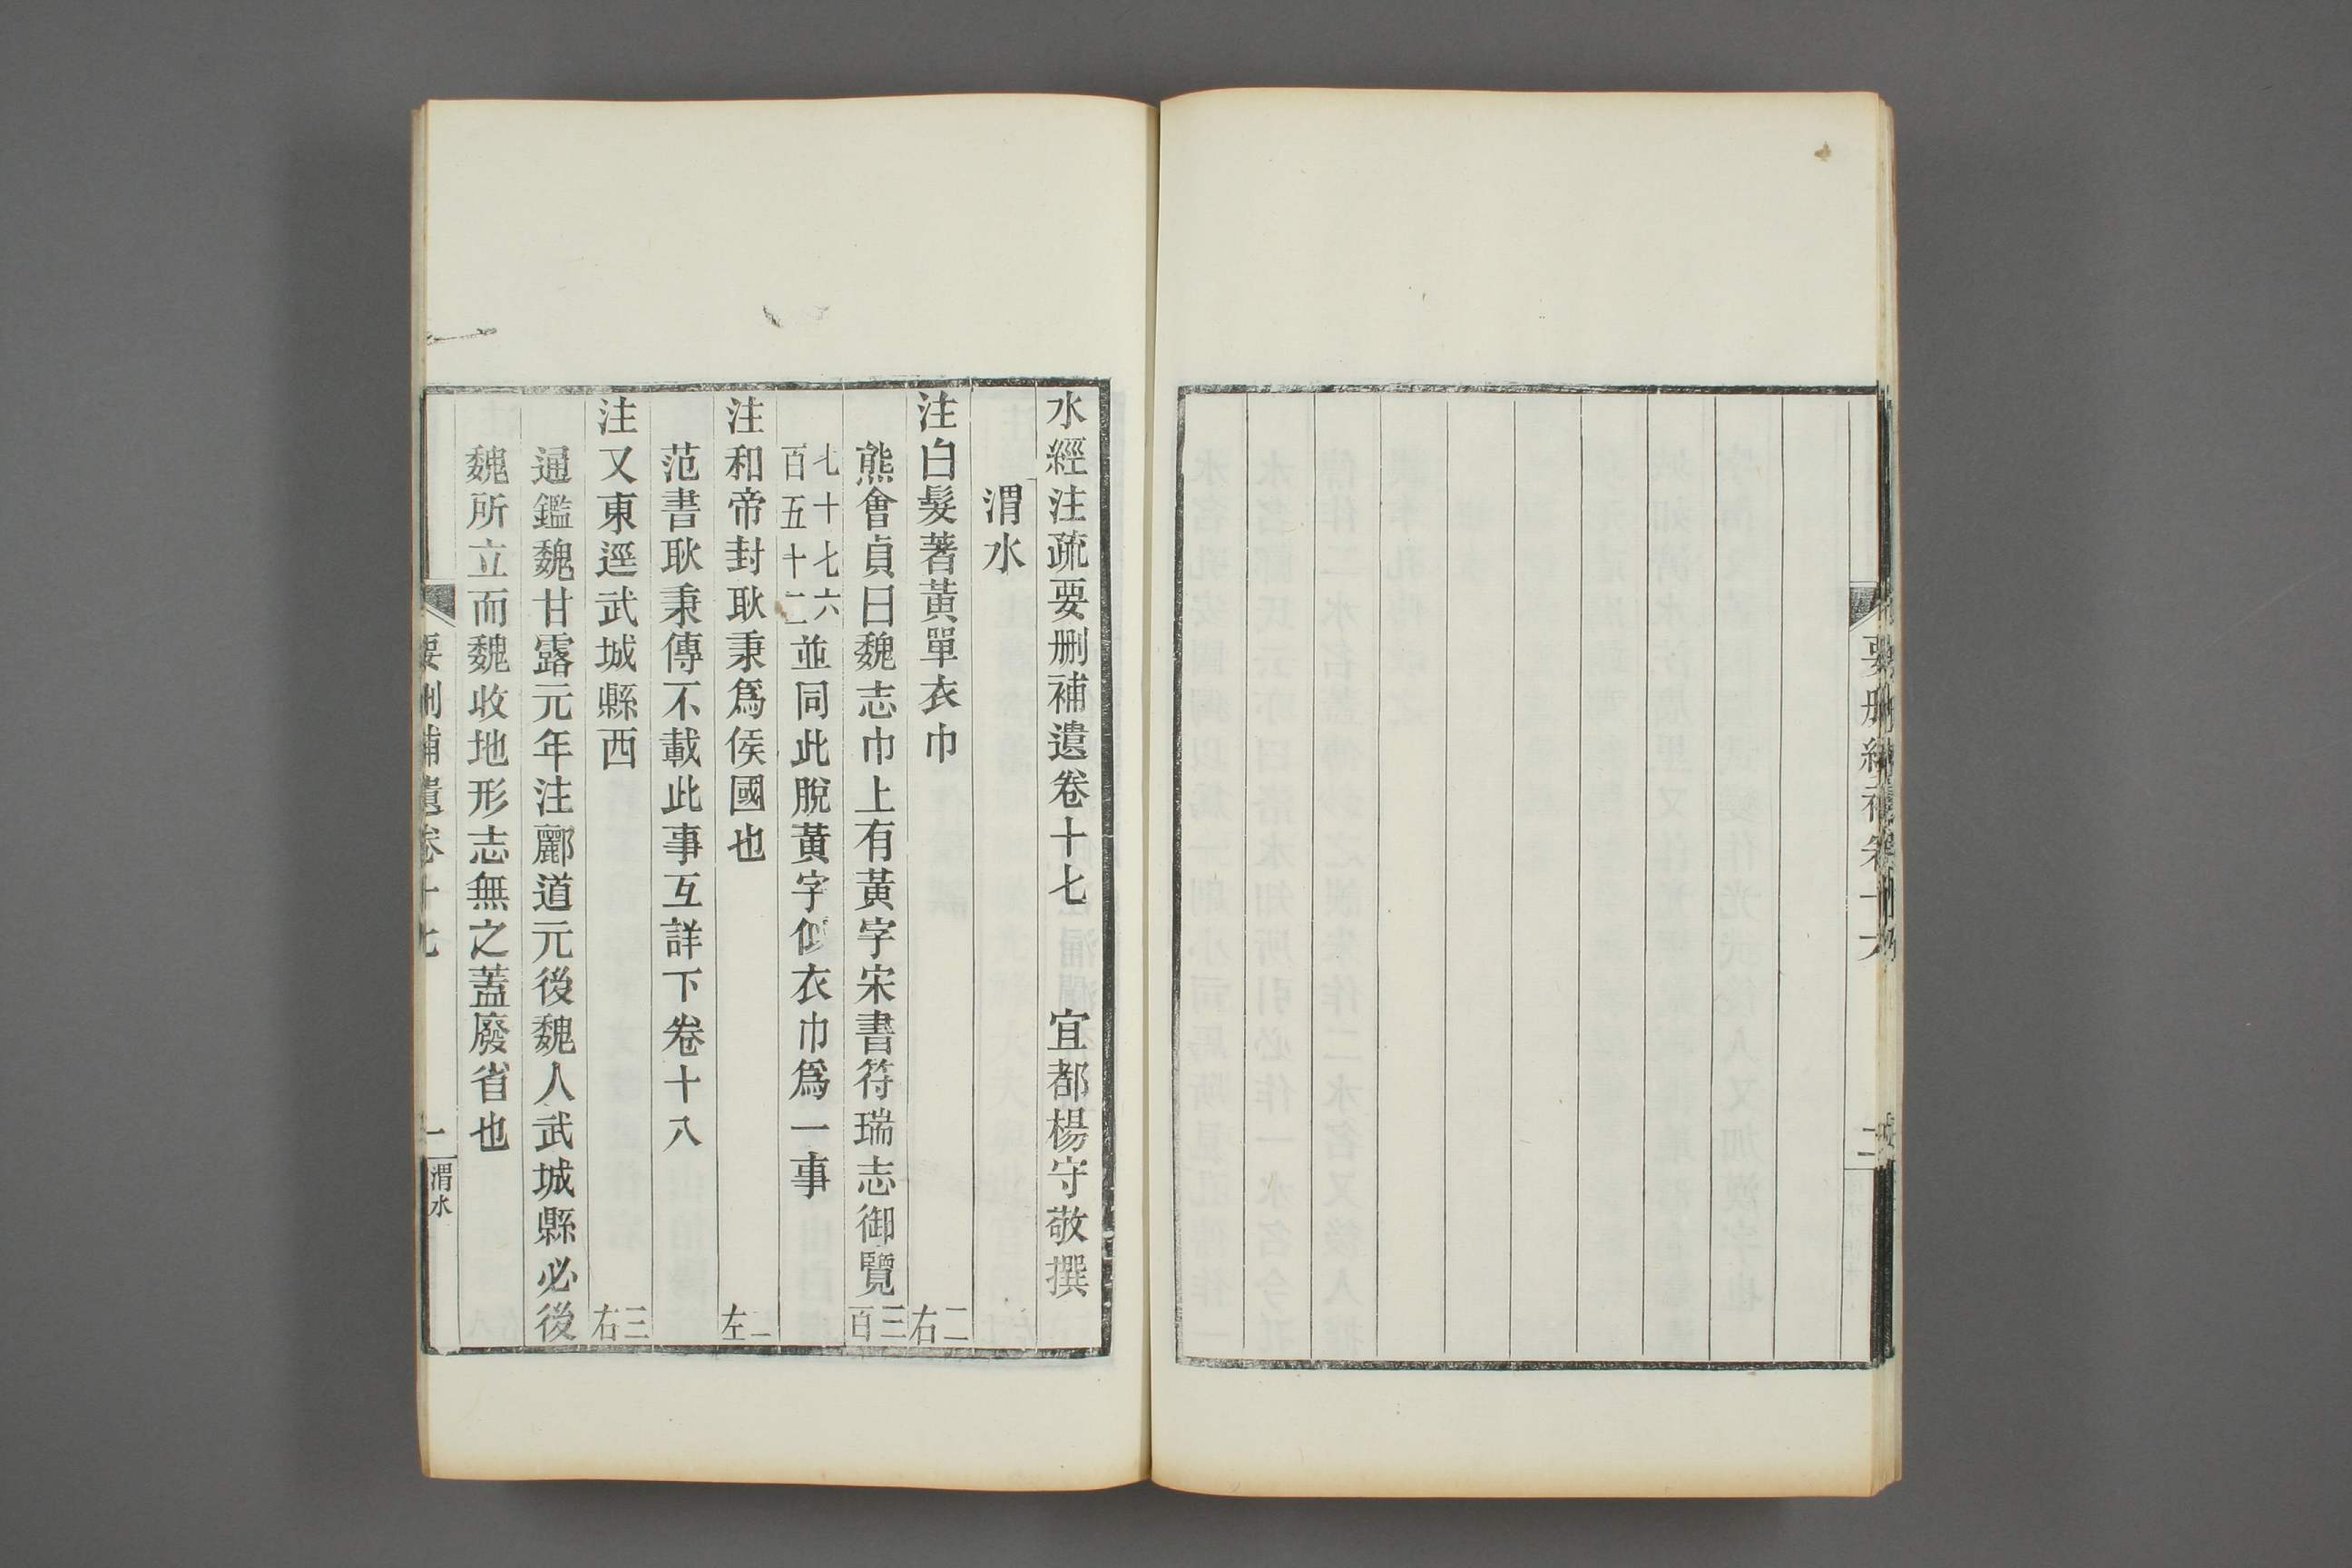 水經注疏要刪補遺卷十七　宜都楊守敬撰
渭水
注白髮著黃單衣巾　二右
熊會貞曰魏志巾上有黃字宋書符瑞志御覽三百
七十七六百五十二並同此脫黃字似衣巾爲一事
注和帝封耿秉爲侯國也　二左
范書耿秉傳不載此事互詳下卷十八
注又東逕武城縣西　三右
通鑑魏甘露元年注酈道元後魏人武城縣必後
魏所立而魏收地形志無之蓋廢省也
要刪補遺卷十七　一　渭水